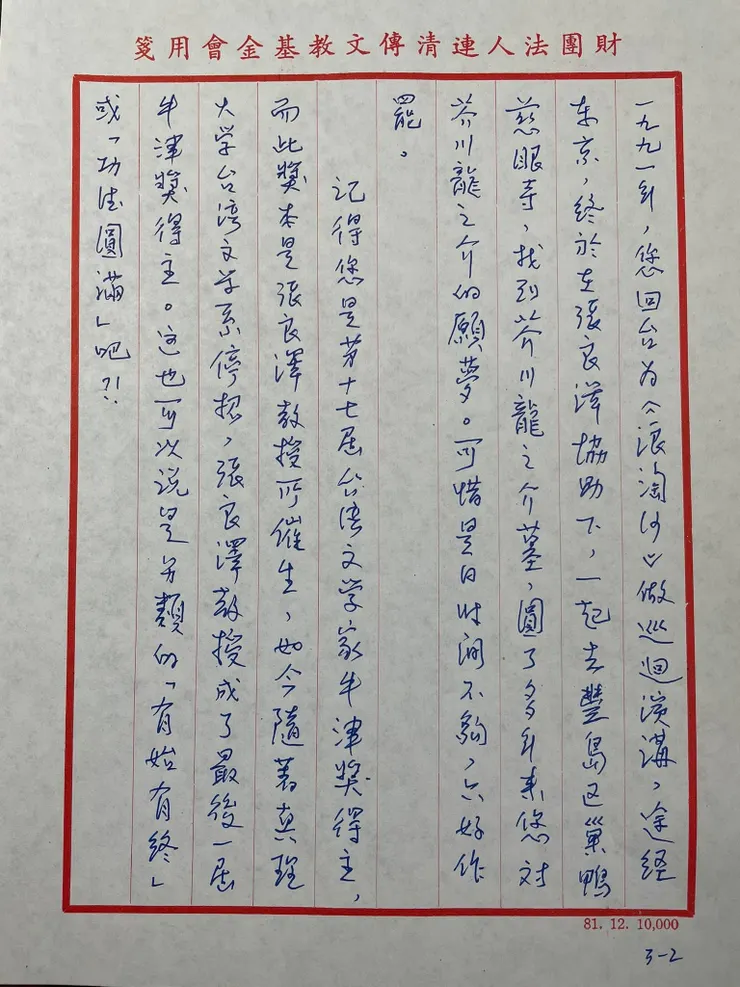 財團法人連清傳文教基金會用箋
一九九一年，您回台为《浪淘沙》做巡迴演講，途经
东京，终於在張良澤協助下，一起去豐島区巢鴨
慈眼寺，找到芥川龍之介墓，圓了多年来您对
芥川龍之介的願夢。可惜是日时间不夠，只好作
罷。
记得您是第十七屆台湾文学家牛津獎得主，
而此獎本是張良澤教授所催生，如今隨着真理
大学台湾文学系停招，張良澤教授成了最後一屆
牛津獎得主。这也可以说是另類的「有始有终」
或「功德圓滿」吧?!
81. 12. 10,000
3-2